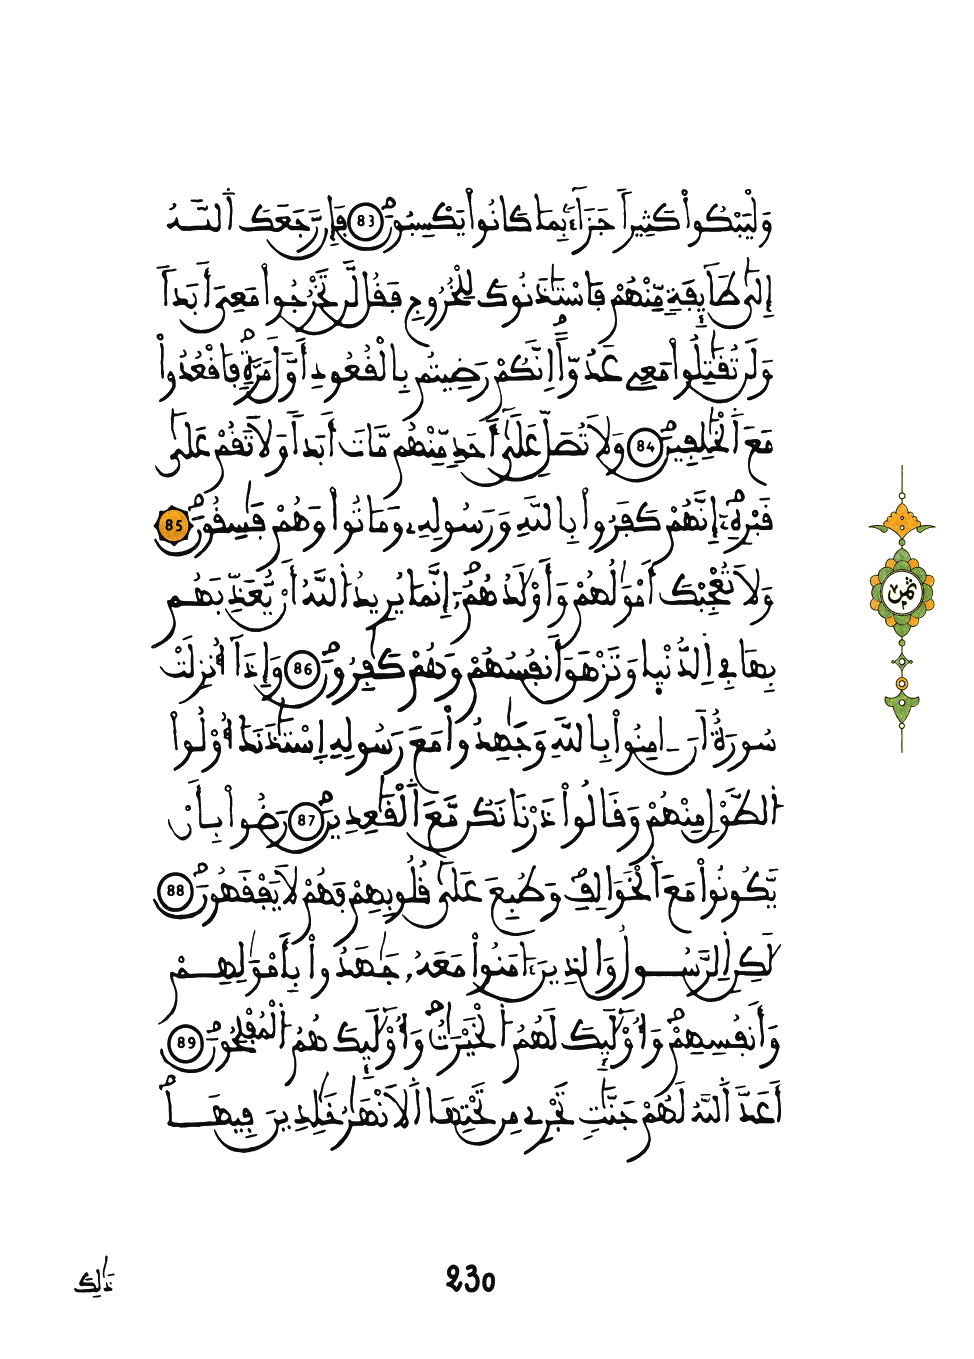 وَلْيَبْكُواْ كَثِيراً جَزَآءَۢ بِمَا كَانُواْ يَكْسِبُونَ 83 فَإِن رَّجَعَكَ اَ۬للَّهُ
إِلَىٰ طَآئِفَةٖ مِّنْهُمْ فَاسْتَـٰٔذَنُوكَ لِلْخُرُوجِ فَقُل لَّن تَخْرُجُواْ مَعِيَ أَبَداٗ
وَلَن تُقَٰتِلُواْ مَعِے عَدُوّاًۖ اِنَّكُمْ رَضِيتُم بِالْقُعُودِ أَوَّلَ مَرَّةٖ فَاقْعُدُواْ
مَعَ اَ۬لْخَٰلِفِينَ 84 وَلَا تُصَلِّ عَلَىٰٓ أَحَدٖ مِّنْهُم مَّاتَ أَبَداٗ وَلَا تَقُمْ عَلَىٰ
قَبْرِهِۦٓۖ إِنَّهُمْ كَفَرُواْ بِاللَّهِ وَرَسُولِهِۦ وَمَاتُواْ وَهُمْ فَٰسِقُونَ 85
وَلَا تُعْجِبْكَ أَمْوَٰلُهُمْ وَأَوْلَٰدُهُمُۥٓۖ إِنَّمَا يُرِيدُ اُ۬للَّهُ أَنْ يُّعَذِّبَهُم
بِهَا فِے اِ۬لدُّنْي۪ا وَتَزْهَقَ أَنفُسُهُمْ وَهُمْ كَٰفِرُونَ 86 وَإِذَآ أُنزِلَتْ
سُورَةٌ اَنَ اٰمِنُواْ بِاللَّهِ وَجَٰهِدُواْ مَعَ رَسُولِهِ اِ۪سْتَـٰٔذَنَكَ أُوْلُواْ
اُ۬لطَّوْلِ مِنْهُمْ وَقَالُواْ ذَرْنَا نَكُن مَّعَ اَ۬لْقَٰعِدِينَ 87 رَضُواْ بِأَنْ
يَّكُونُواْ مَعَ اَ۬لْخَوَالِفِۖ وَطُبِعَ عَلَىٰ قُلُوبِهِمْ فَهُمْ لَا يَفْقَهُونَ 88
لَٰكِنِ اِ۬لرَّسُولُ وَالذِينَ ءَامَنُواْ مَعَهُۥ جَٰهَدُواْ بِأَمْوَٰلِهِمْ
وَأَنفُسِهِمْۖ وَأُوْلَٰٓئِكَ لَهُمُ اُ۬لْخَيْرَٰتُۖ وَأُوْلَٰٓئِكَ هُمُ اُ۬لْمُفْلِحُونَ 89
أَعَدَّ اَ۬للَّهُ لَهُمْ جَنَّٰتٖ تَجْرِے مِن تَحْتِهَا اَ۬لَانْهَٰرُ خَٰلِدِينَ فِيهَاۖ
ثمن
ذَٰلِكَ
230